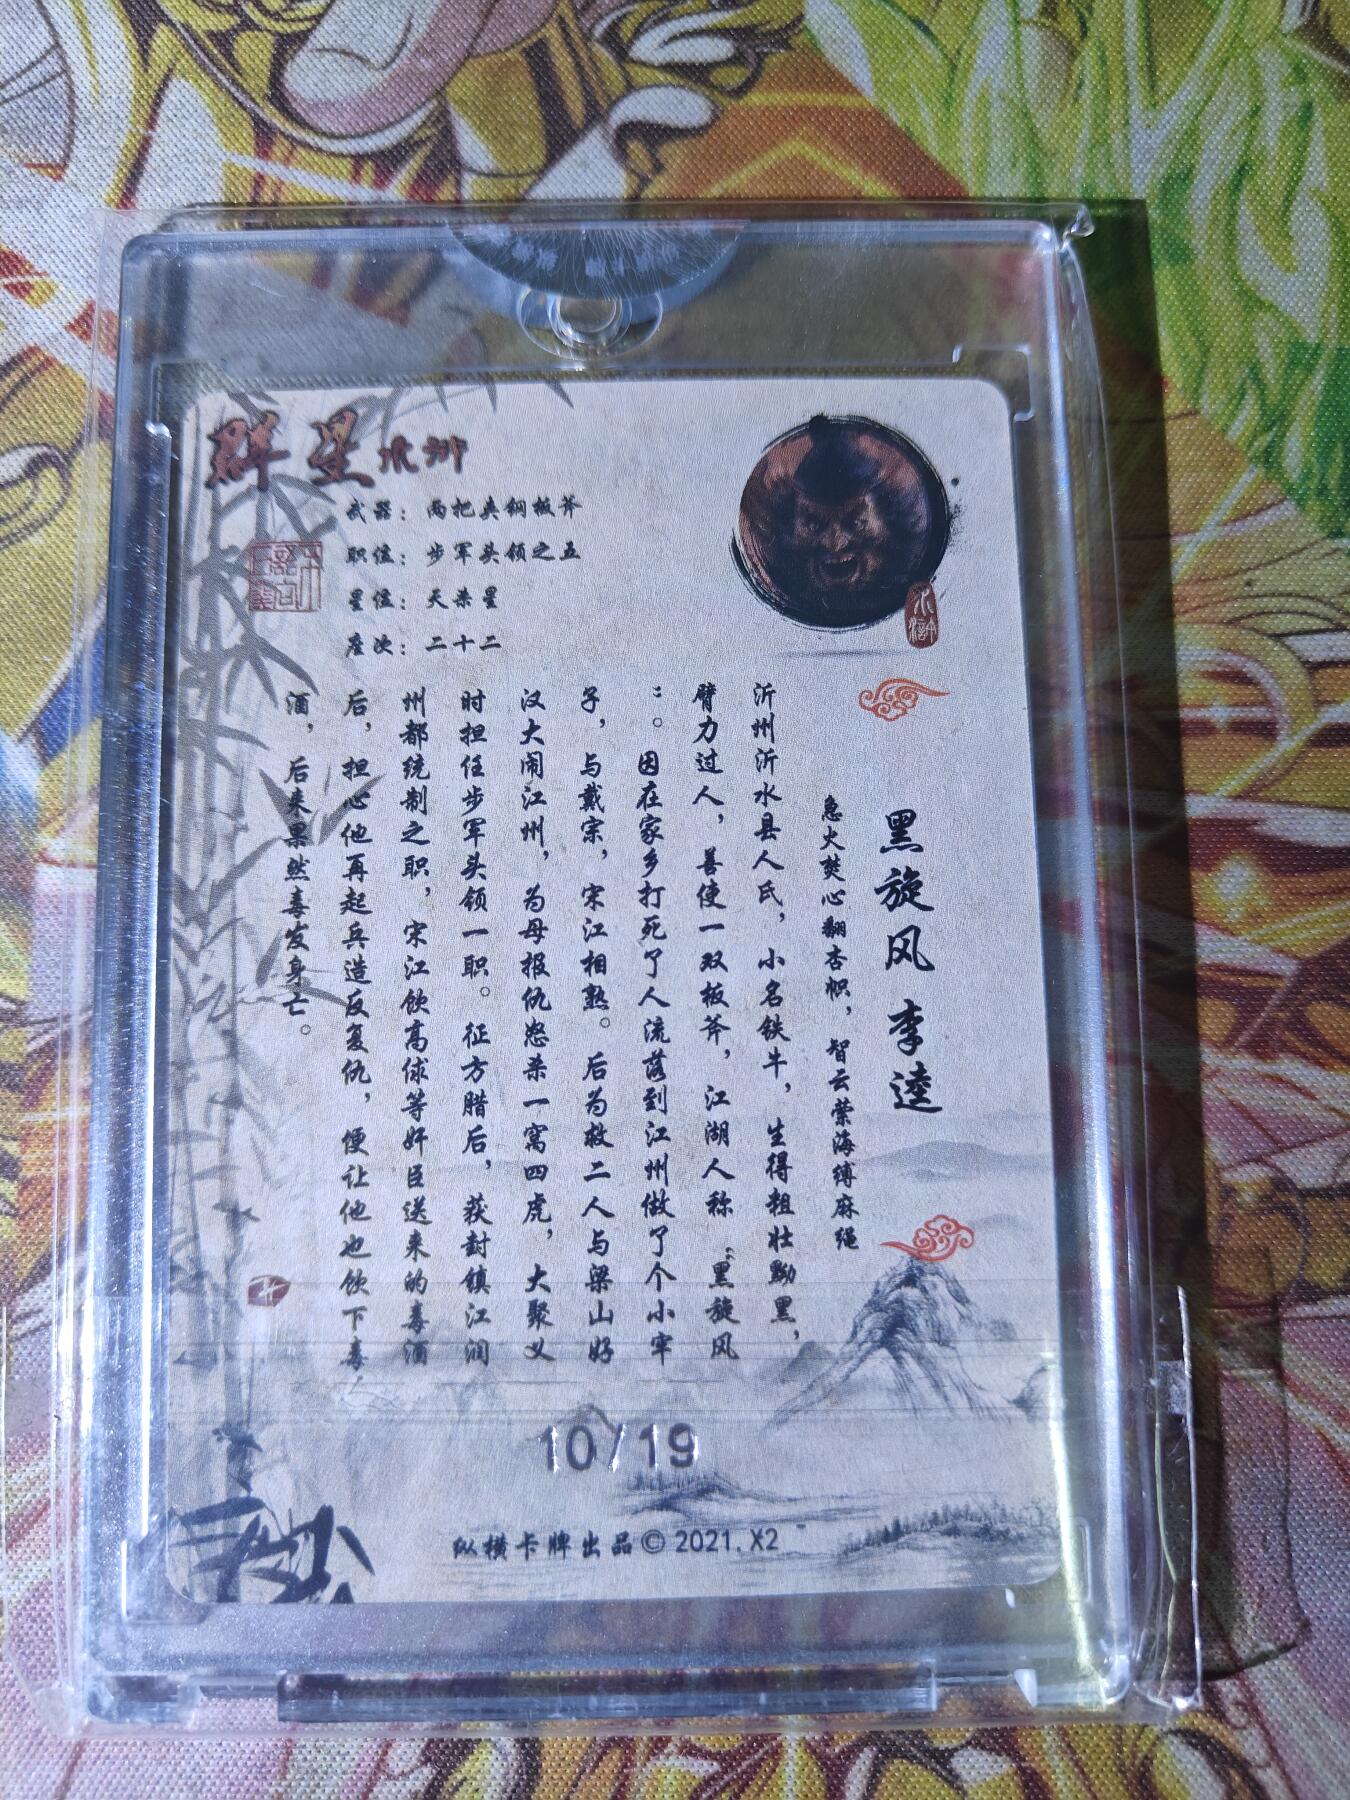 群星水浒
武器：两把夹钢板斧
职位：步军头领之五
星位：天杀星
座次：二十二
水浒
黑旋风 李逵
急火焚心翻杏帜，智云萦海缚麻绳
沂州沂水县人氏，小名铁牛，生得粗壮黝黑，
臂力过人，善使一双板斧，江湖人称“黑旋风
”。因在家乡打死了人流落到江州做了个小牢
子，与戴宗，宋江相熟。后为救二人与梁山好
汉大闹江州，为母报仇怒杀一窝四虎，大聚义
时担任步军头领一职。征方腊后，获封镇江润
州都统制之职，宋江饮高俅等奸臣送来的毒酒
后，担心他再起兵造反复仇，便让他也饮下毒
酒，后来果然毒发身亡。
10/19
纵横卡牌出品© 2021. X2